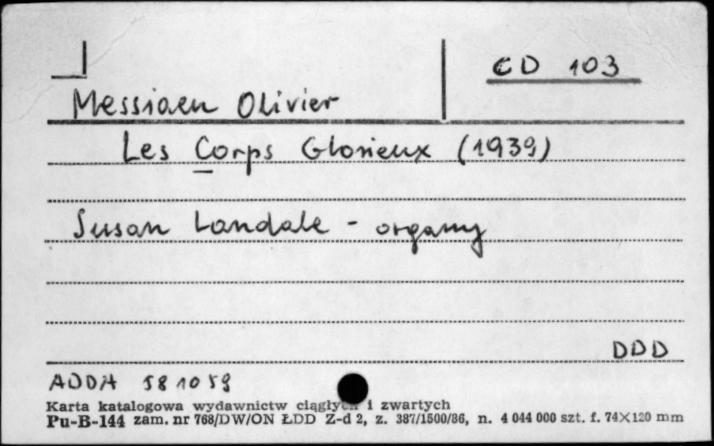 CD 103
Messiaen Olivier
Les Corps Glorieux (1939)
Susan Landale - organy
DDD
ADDA 581059
Karta katalogowa wydawnictw ciągłych i zwartych
Pu-B-144 zam. nr 768/DW/ON ŁDD Z-d 2, z. 387/1500/86, n. 4 044 000 szt. f. 74×120 mm